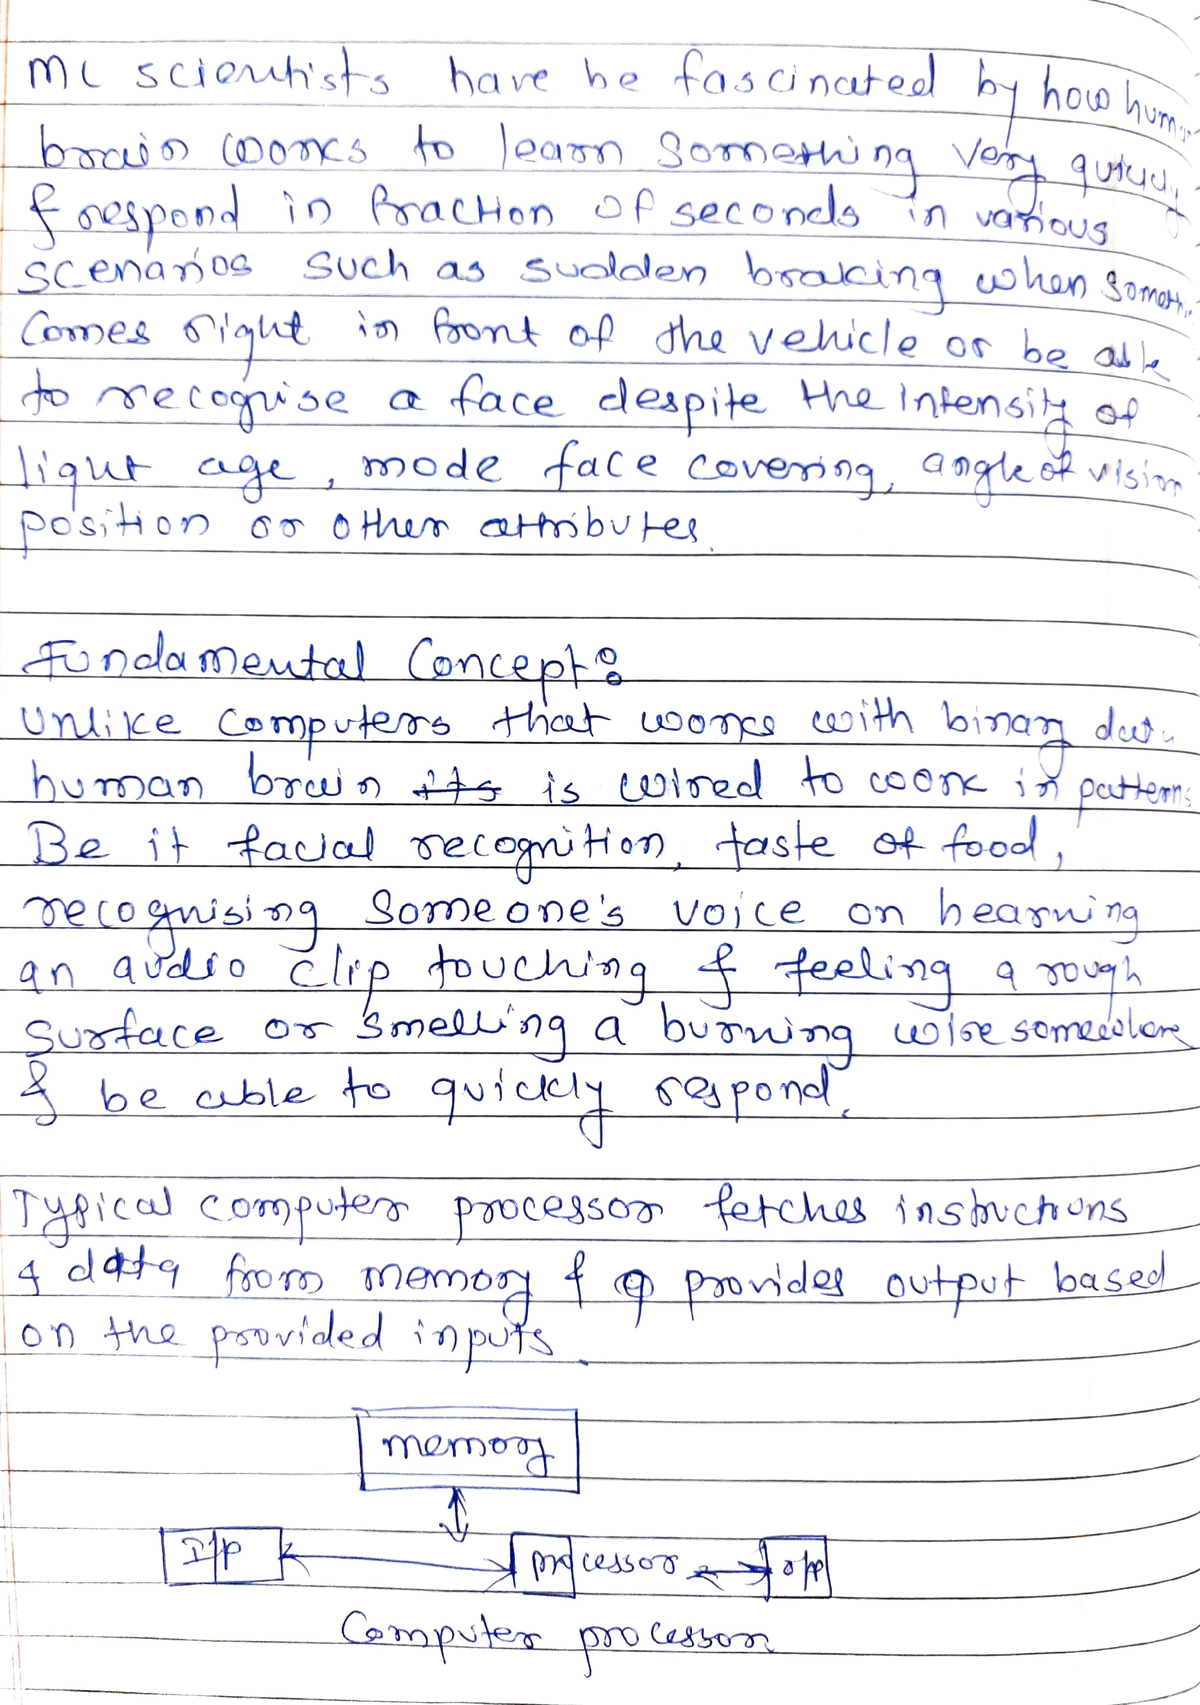 ML scientists have be fascinated by how human
brain works to learn something very quickly
& respond in fraction of seconds in various
scenarios such as sudden braking when someth
Comes right in front of the vehicle or be able
to recognise a face despite the intensity of
light age, mode face covering, angle of vision
position or other attributes.
Fundamental Concept:
Unlike computers that works with binary data
human brain its is wired to work in patterns
Be it facial recognition, taste of food,
recognising someone's voice on hearning
an audio clip touching & feeling a rough
surface or smelling a burning wire somewhere
& be able to quickly respond.
Typical computer processor fetches instructions
& data from memory & provides output based
on the provided inputs.
memory
I/P processor O/P
Computer processor